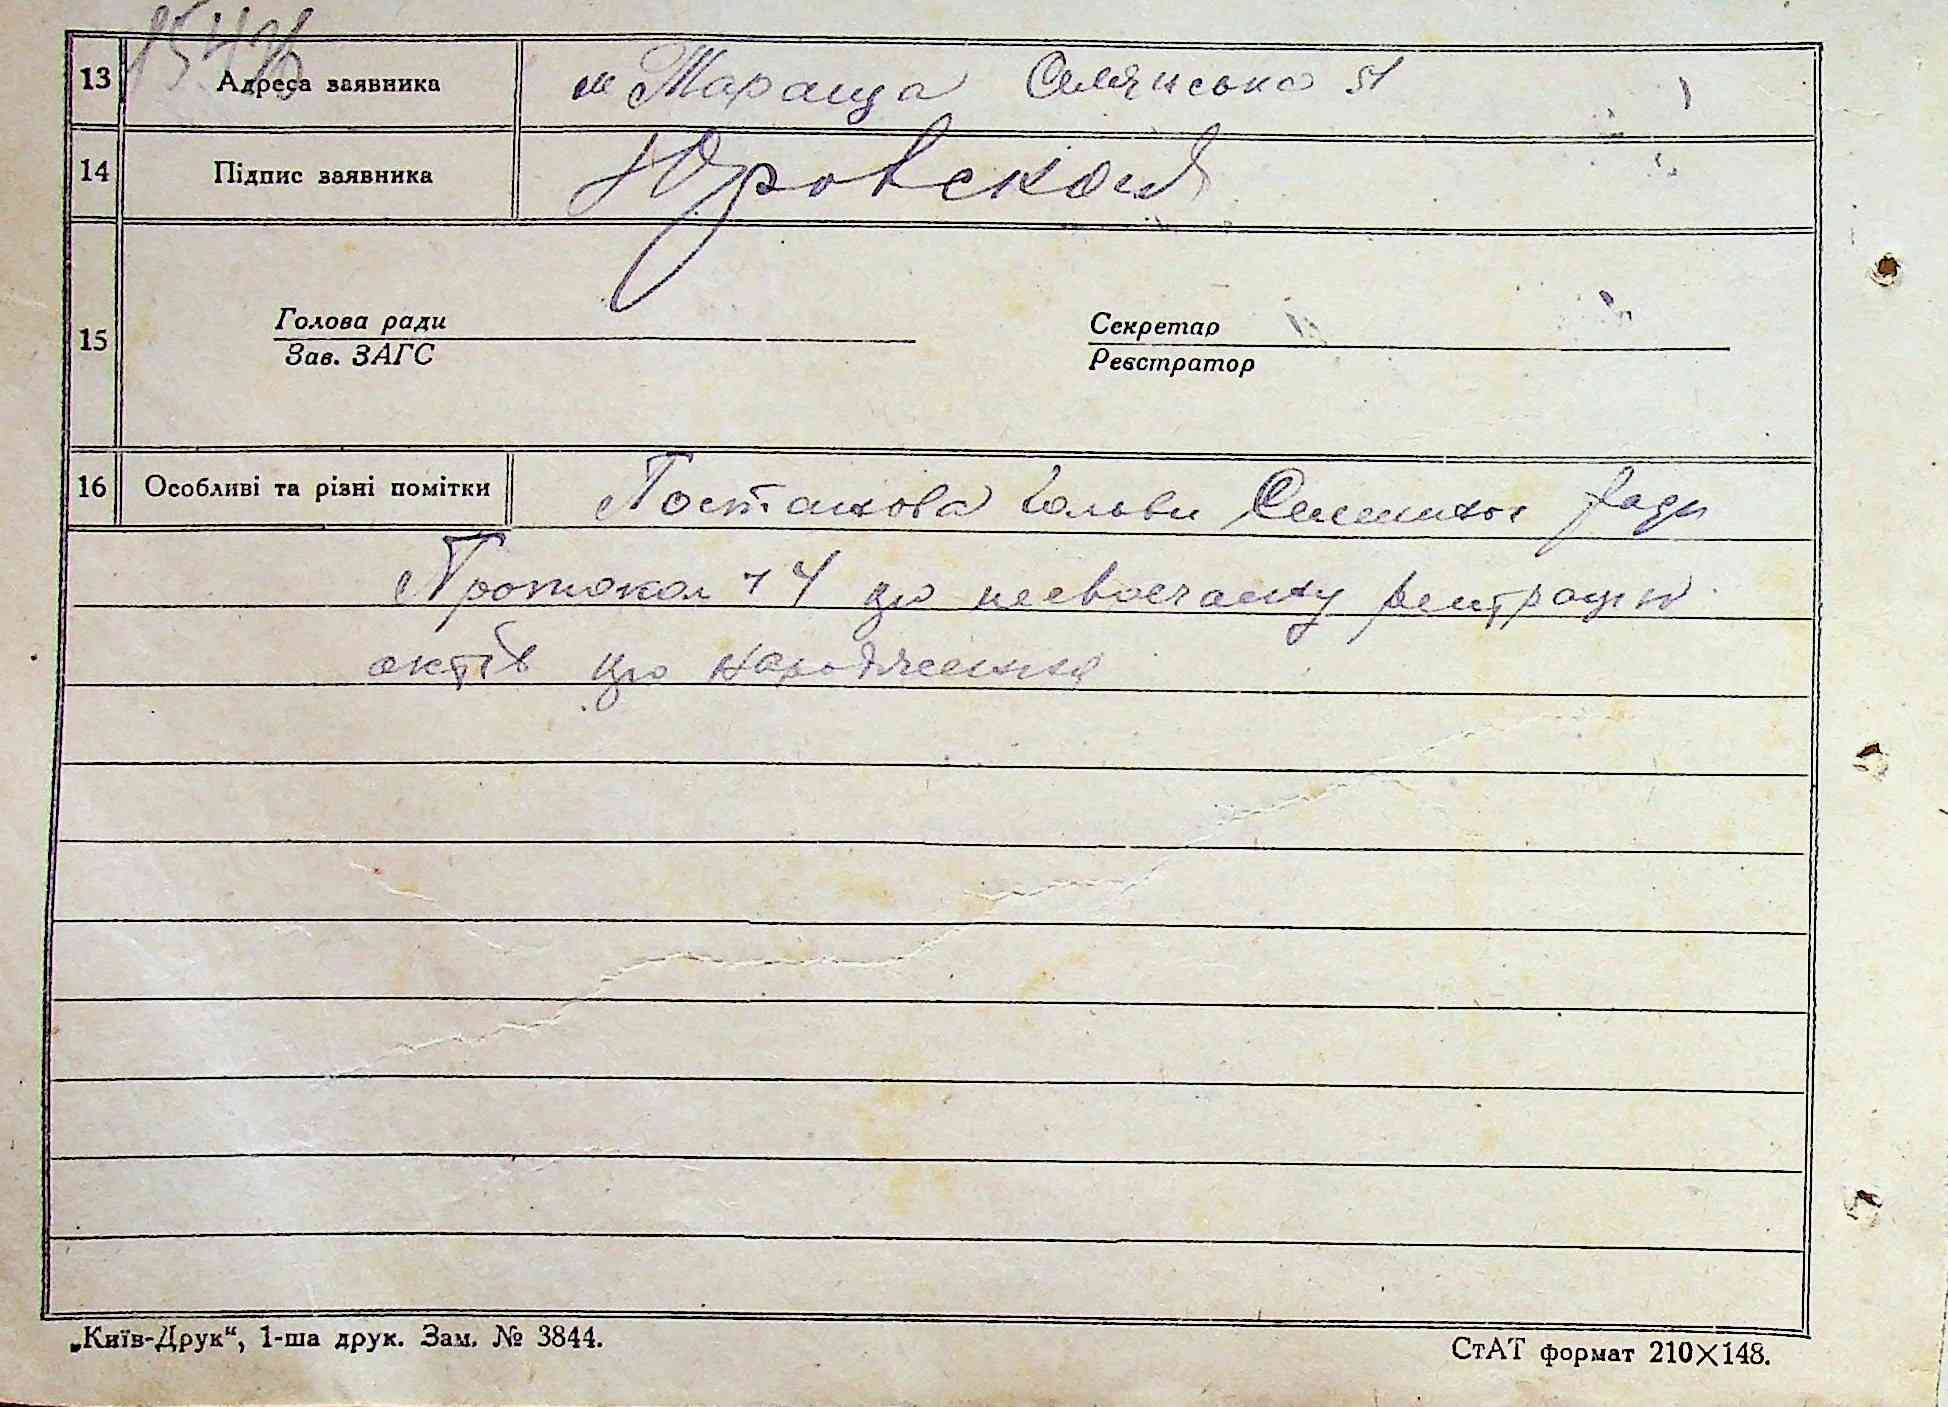 13 Адреса заявника м Тараща Селянська 51
14 Підпис заявника Юровская
15
Голова ради Секретар
Зав. ЗАГС Реєстратор
16 Особливі та різні помітки Постанова Голови ради
Протокол 14 про несвоєчасну
актів про народження
„Київ-Друк“, 1-ша друк. Зам. № 3844. СтАТ формат 210×148.